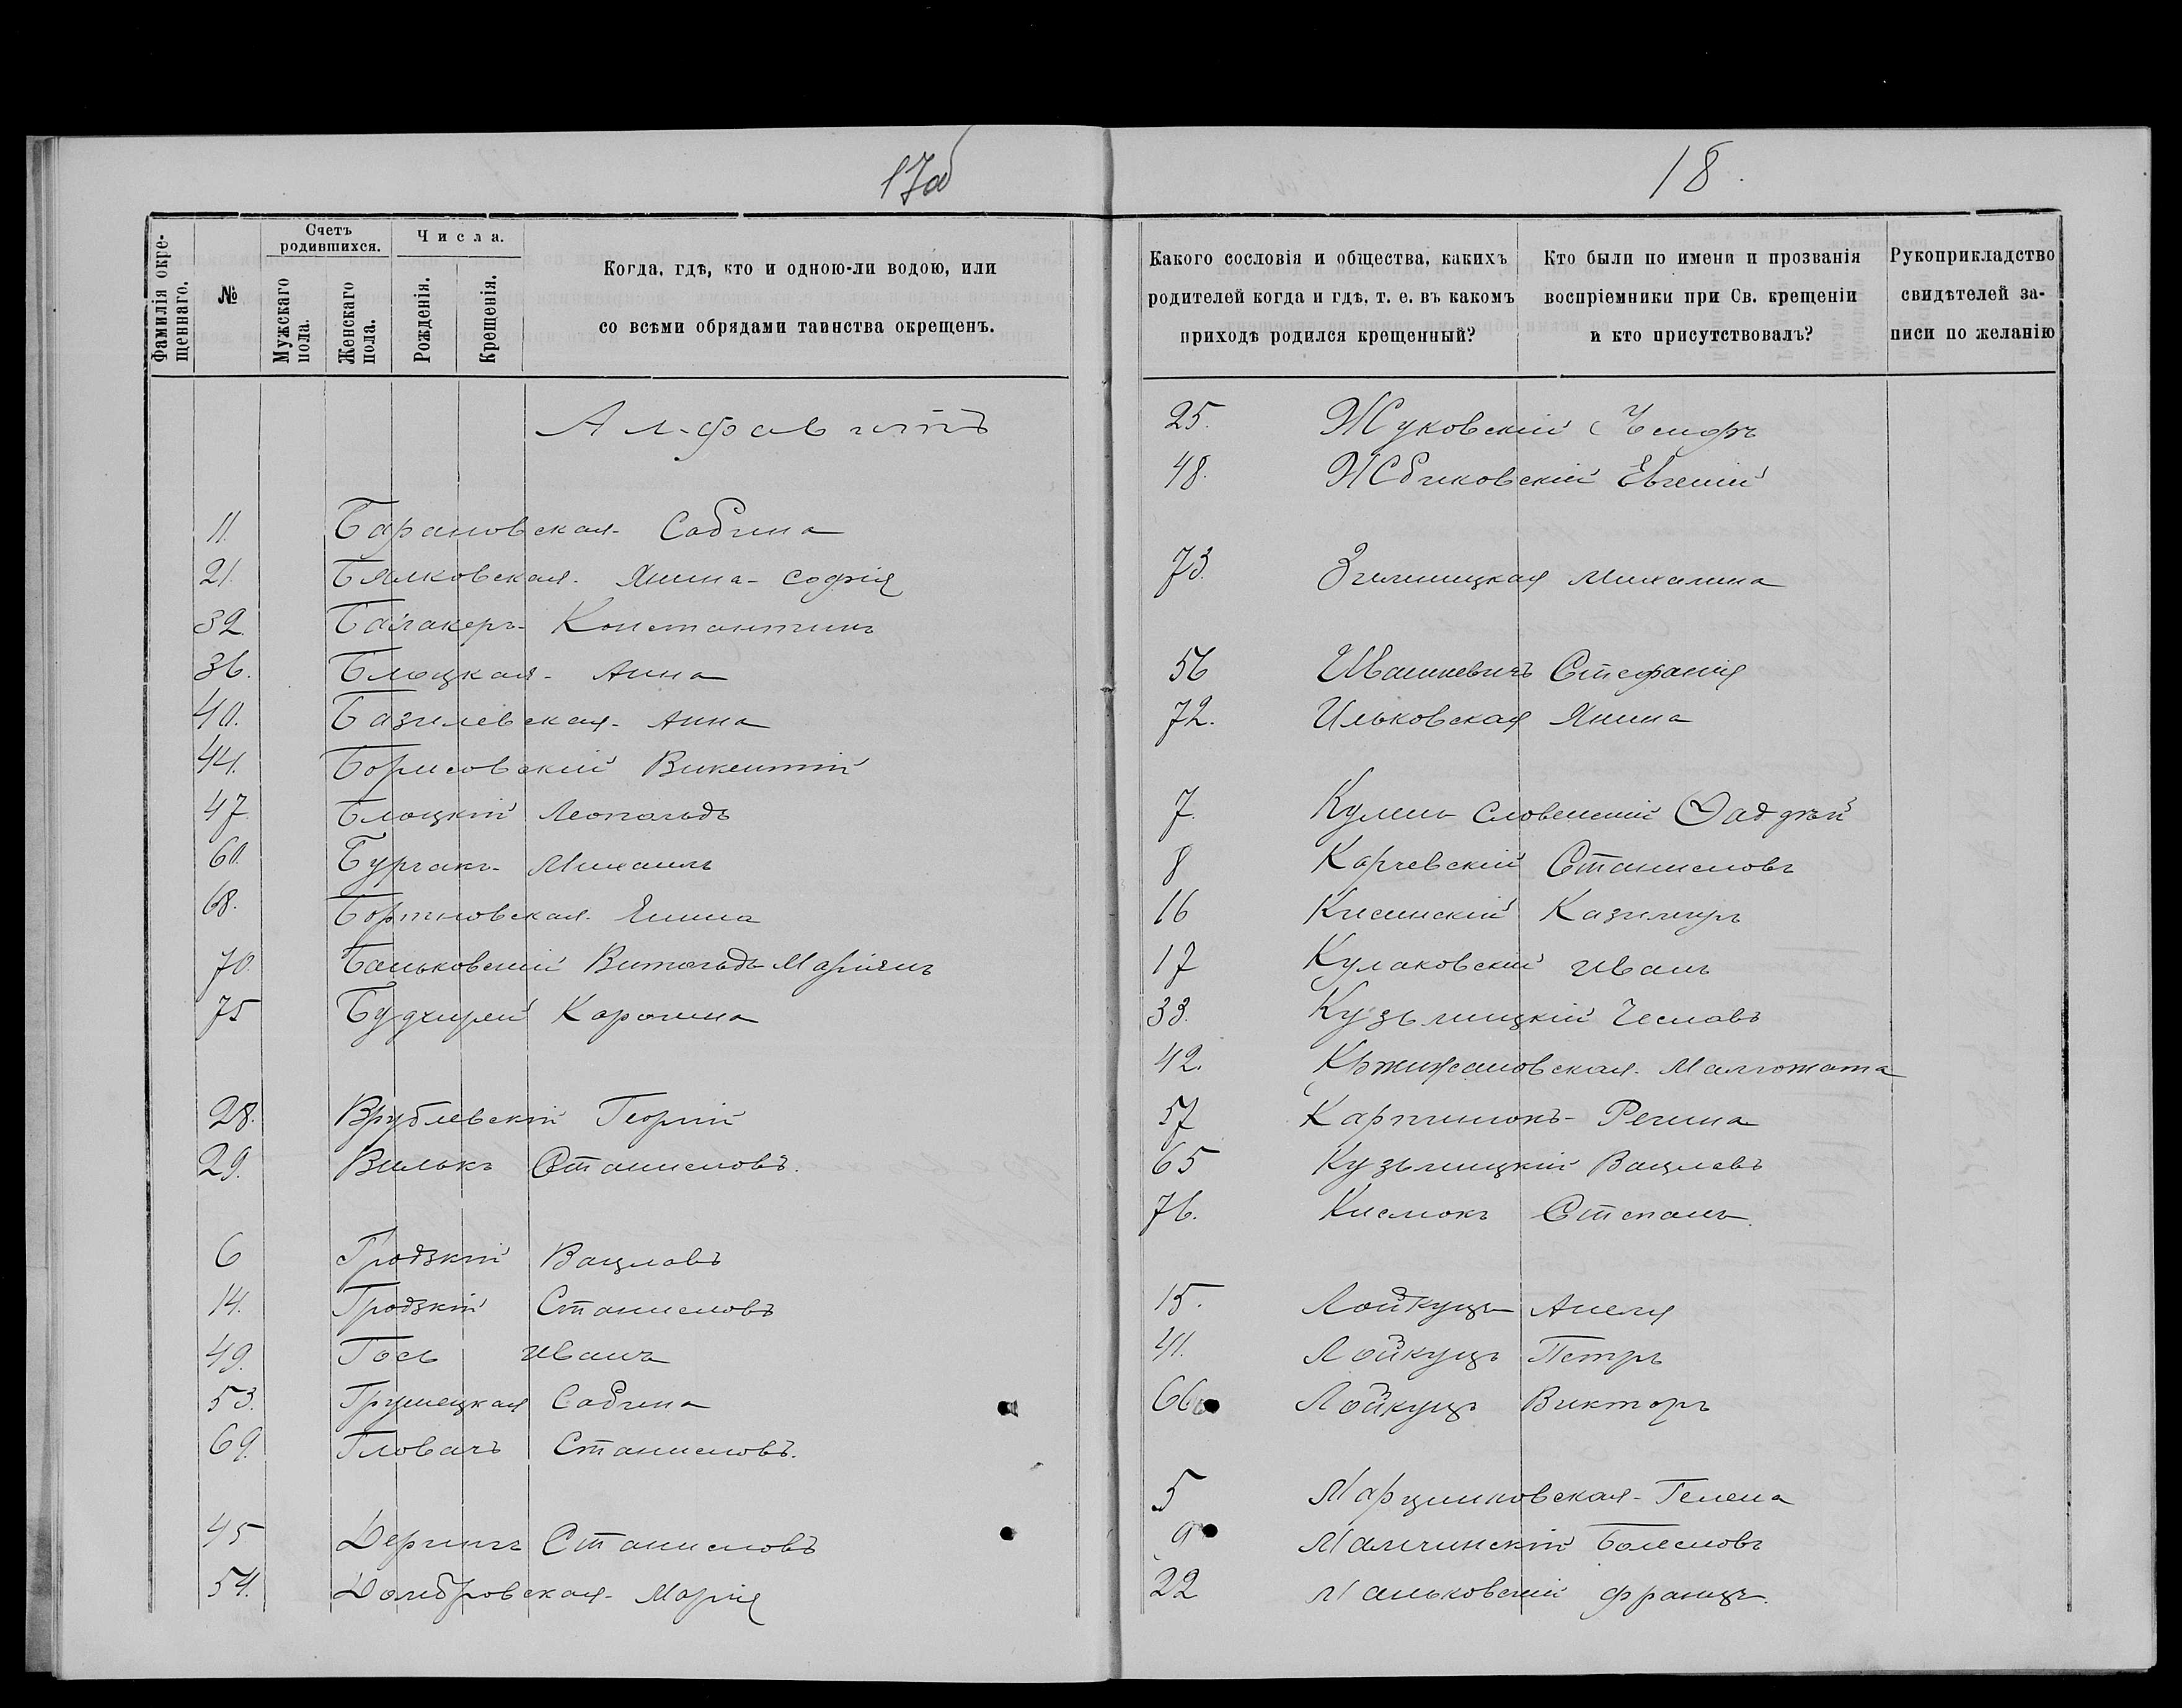 17об
18.
Фамилія окрещеннаго.
№
Счетъ родившихся.
Мужскаго пола.
Женскаго пола.
Числа.
Рожденія.
Крещенія.
Когда, гдѣ, кто и одною-ли водою, или
со всѣми обрядами таинства окрещенъ.
Какого сословія и общества, какихъ
родителей когда и гдѣ, т. е. въ какомъ
приходѣ родился крещенный?
Кто были по имени и прозванія
воспріемники при Св. крещеніи
и кто присутствовалъ?
Рукоприкладство
свидѣтелей за-
писи по желанію
Алфавитъ
11. Барановская Сабина
21. Бялковская Янина-Софія
32. Константинъ
36. Блоцкая Анна
40. Базилевская Анна
44. Борисовскій Викентій
47. Блоцкій Леопольдъ
60. Михаилъ
68. Бортновская Янина
70. Баньковскій Витольдъ-Маріянъ
75 Каролина
28. Врублевскій Георгій
29. Вилькъ Станиславъ.
6 Гродзкій Вацлавъ
14. Гродзкій Станиславъ
49. Гось Иванъ
53. Грушецкая Сабина
69. Гловачъ Станиславъ.
45 Дерингъ Станиславъ
54. Домбровская Марія
25. Жуковскій
48. Жбиковскій Евгеній
73. Михалина
56 Ивашкевичъ Стефанія
72. Ильковская Янина
7. Словенскій Фаддѣй
8 Карчевскій Станиславъ
16 Кисинскій Казимиръ
17 Кулаковскій Иванъ
33. Кузьмицкій Чеславъ
42. Кржижановская Малгожата
57 Регина
65 Кузьмицкій Вацлавъ
76. Кислюкъ Степанъ.
15. Лойкуцъ Анеля
41. Лойкуцъ Петръ
66 Лойкуцъ Викторъ
5 Марцинковская Гелена
9 Мальчинскій Болеславъ
22 Маньковскій Францъ.